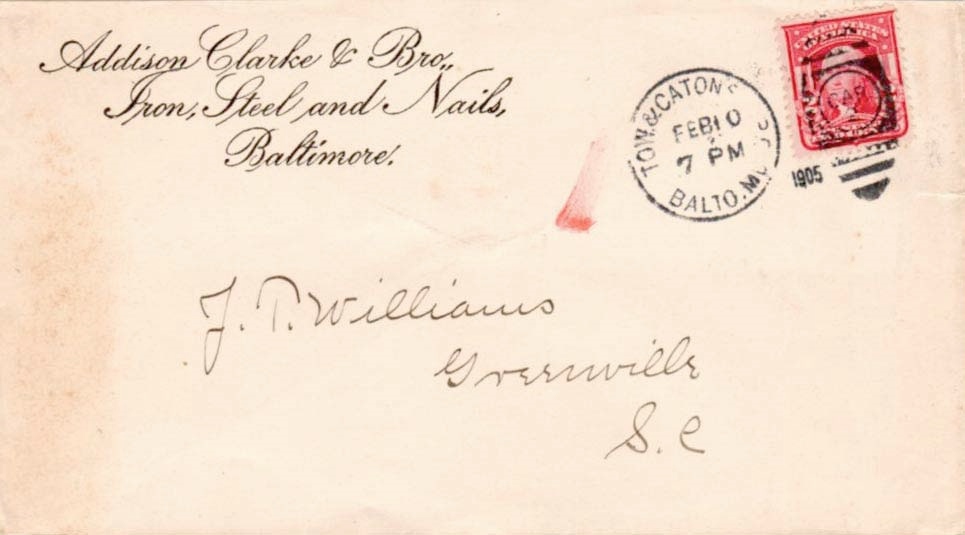 Addison Clarke & Bro.,
Iron, Steel and Nails,
Baltimore.
UNITED STATES
TOW. & CATONS
FEB 10
7 PM
BALTO. MD
1905
CAR
J. T. Williams
Greenville
S. C